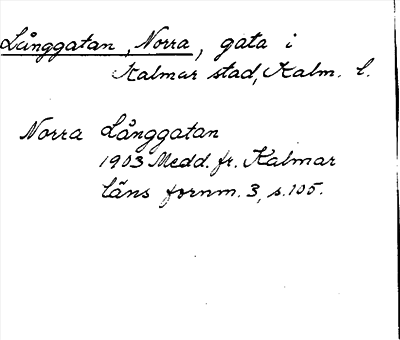 Långgatan, Norra, gata i
Kalmar stad, Kalm. l.
Norra Långgatan
1903 Medd. fr. Kalmar
läns fornm. 3, s. 105.